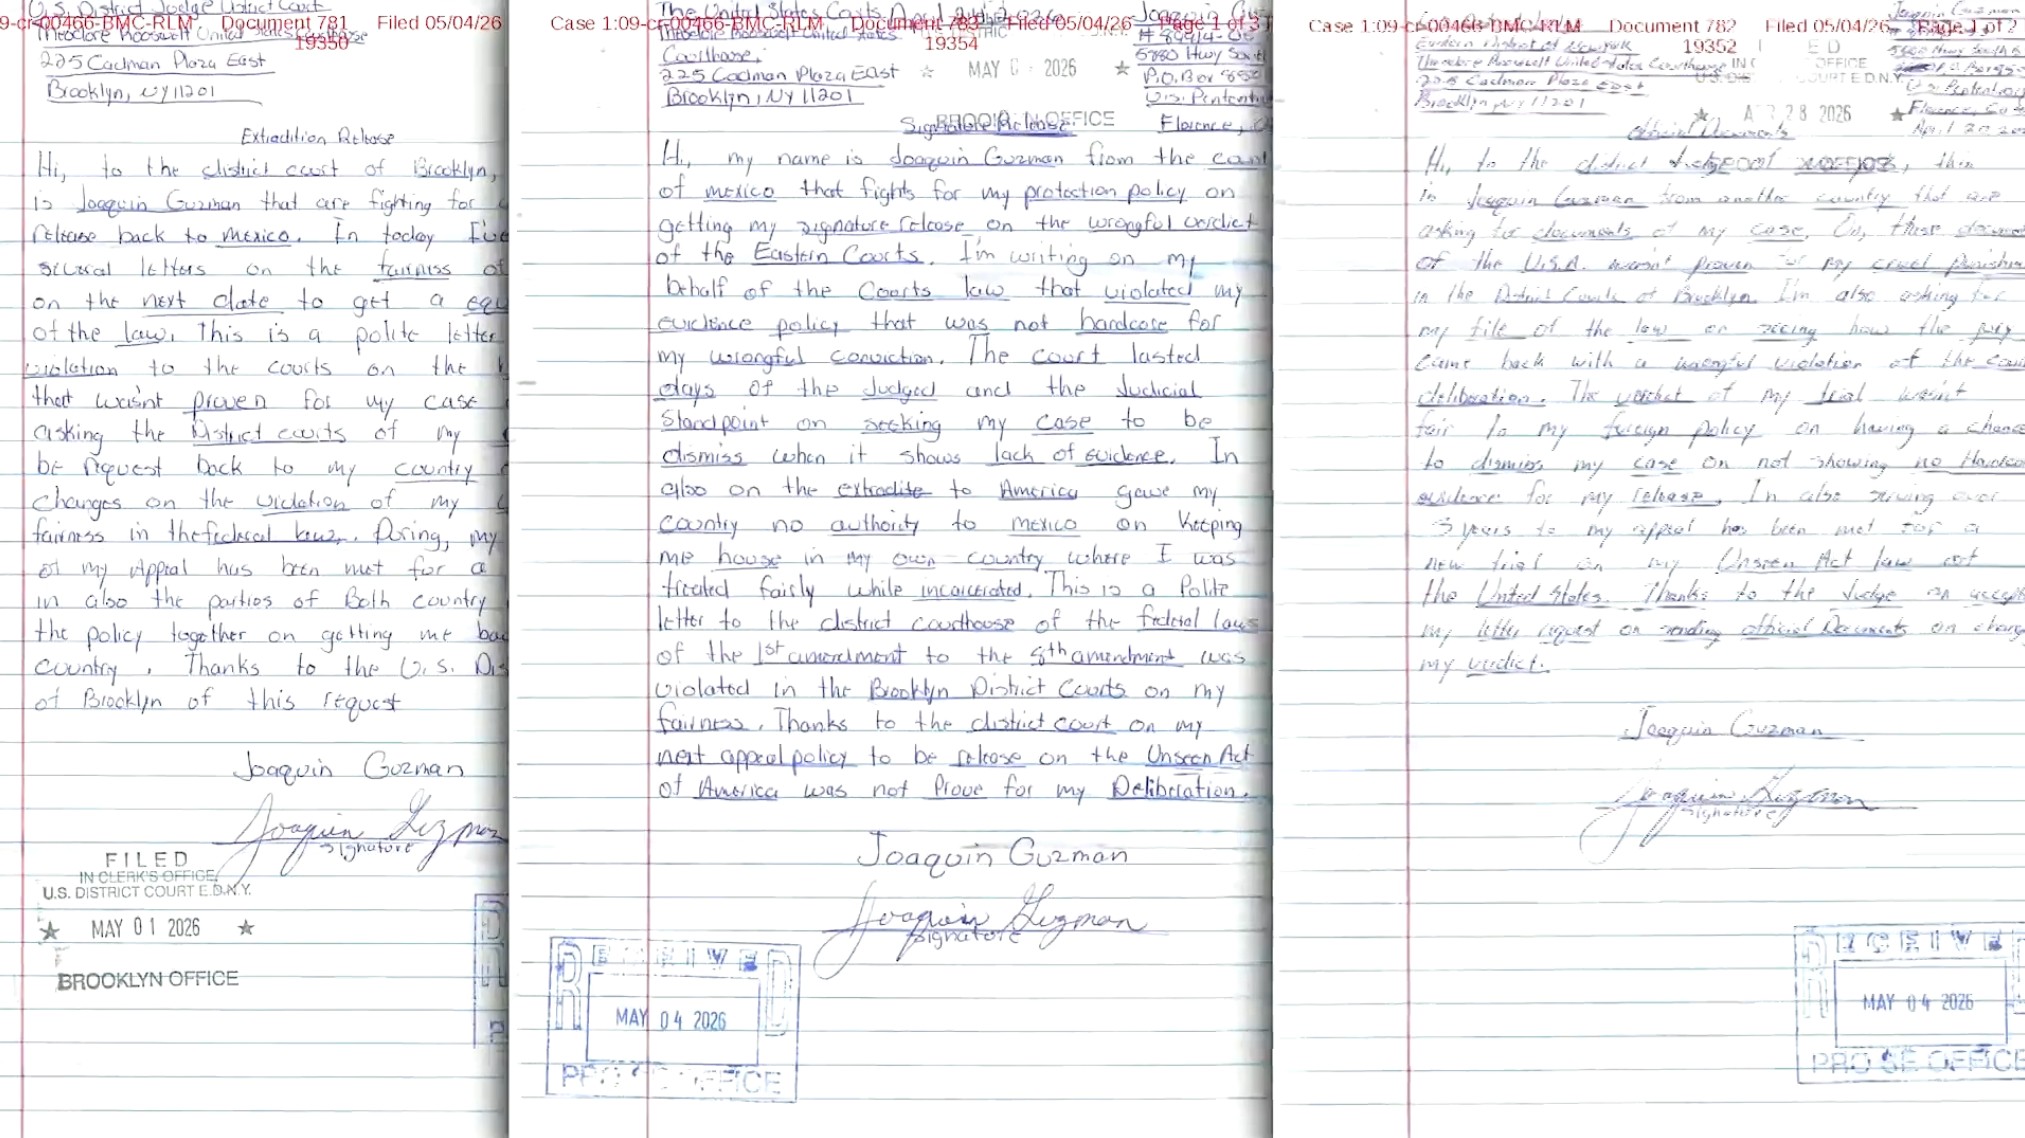 U.S. District Judge District Court
9-cr-00466-BMC-RLM Document 781 Filed 05/04/26
19350
Theodore Roosevelt United States Courthouse
225 Cadman Plaza East
Brooklyn, NY 11201
Extradition Release
Hi, to the district court of Brooklyn,
is Joaquin Guzman that are fighting for
release back to mexico. In today I've
several letters on the fairness of
on the next date to get a equ
of the law. This is a polite letter
violation to the courts on the
that wasn't proven for my case
asking the District courts of my
be request back to my country
changes on the violation of my
fairness in the federal law. During, my
of my Appeal has been met for a
in also the parties of Both country
the policy together on getting me bac
country. Thanks to the U.S. Dis
of Brooklyn of this request
Joaquin Guzman
Joaquin Guzman
signature
FILED
IN CLERK'S OFFICE
U.S. DISTRICT COURT E.D.N.Y.
★ MAY 01 2026 ★
BROOKLYN OFFICE
The United States Courts
Case 1:09-cr-00466-BMC-RLM Document 783 Filed 05/04/26 Page 1 of 3
19354
Theodore Roosevelt United States
Courthouse,
225 Cadman Plaza East
Brooklyn, NY 11201
5880 Hwy
P.O. Box
Florence,
★ MAY 2026 ★
BROOKLYN OFFICE
Signature Release
Hi, my name is Joaquin Guzman from the
of mexico that fights for my protection policy on
getting my signature release on the wrongful verdict
of the Eastern Courts. I'm writing on my
behalf of the Courts law that violated my
evidence policy that was not hardcose for
my wrongful conviction. The court lasted
days of the Judged and the Judicial
Standpoint on seeking my case to be
dismiss when it shows lack of evidence. In
also on the extradite to America gave my
country no authority to mexico on Keeping
me house in my own country where I was
treated fairly while incarcerated. This is a Polite
letter to the district courthouse of the federal laws
of the 1st amendment to the 8th amendment was
violated in the Brooklyn District Courts on my
fairness. Thanks to the district court on my
next appeal policy to be release on the Unseen Act
of America was not Prove for my Deliberation.
Joaquin Guzman
Joaquin Guzman
signature
RECEIVED
MAY 04 2026
PRO SE OFFICE
Case 1:09-cr-00466-BMC-RLM Document 782 Filed 05/04/26 Page 1 of 2
19352
Eastern District of New York
Theodore Roosevelt United States Courthouse
225 Cadman Plaza East
Brooklyn NY 11201
★ APR 28 2026 ★
official Documents
Hi, to the district, this
is Joaquin Guzman from another country that are
asking for documents of my case. On, these
of the U.S.A. wasn't proven for my cruel
in the District Courts of Brooklyn. I'm also asking for
my file of the law on seeing how the jury
came back with a wrongful violation of the
deliberation. The verdict of my trial wasn't
fair to my foreign policy on having a chance
to dismiss my case on not showing no
evidence for my release. In also serving over
3 years to my appeal has been met for a
new trial on my Unseen Act law of
the United States. Thanks to the Judge on accept
my letter request on sending official Documents on
my verdict.
Joaquin Guzman
Joaquin Guzman
signature
RECEIVED
MAY 04 2026
PRO SE OFFICE